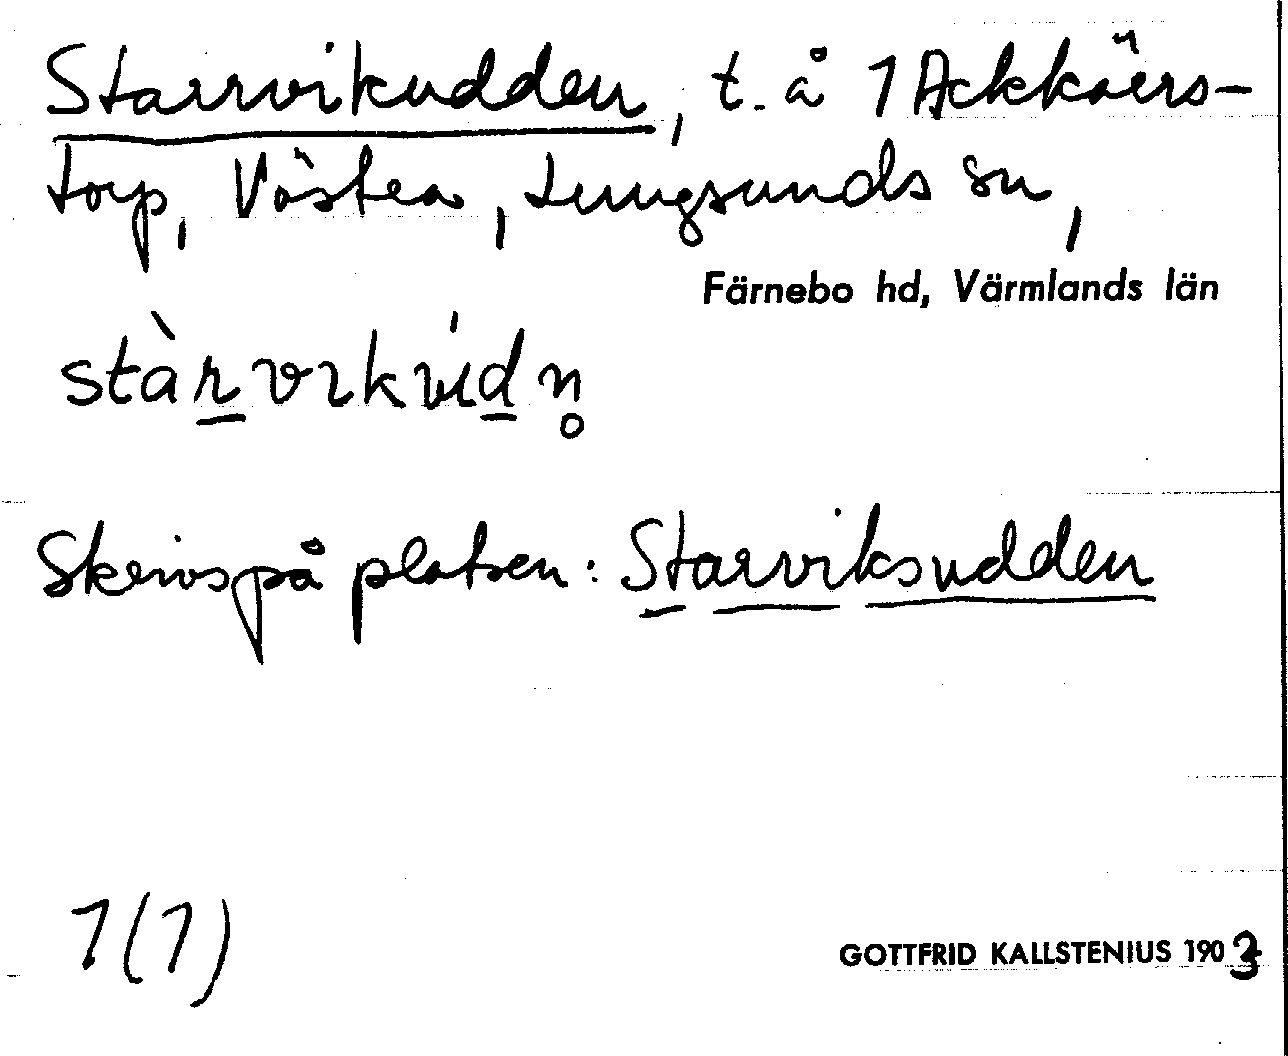 Starrvikudden, t. å 1 Ackkärs-
torp, Västra, Lungsunds sn,
Färnebo hd, Värmlands län
Skrivs på platsen: Starrviksudden
1(1)
GOTTFRID KALLSTENIUS 1903